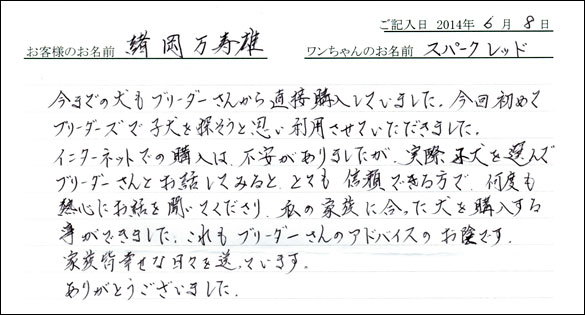 ご記入日 2014年 6月 8日
お客様のお名前 緒岡万寿雄 ワンちゃんのお名前 スパークレッド
今までの犬もブリーダーさんから直接購入していました。今回初めて
ブリーダーズで子犬を探そうと思い利用させていただきました。
インターネットでの購入は、不安がありましたが、実際子犬を選んで
ブリーダーさんとお話してみると、とても信頼できる方で、何度も
熱心にお話を聞いてくださり、私の家族に合った犬を購入する
事ができました。これもブリーダーさんのアドバイスのお陰です。
家族皆幸せな日々を送っています。
ありがとうございました。